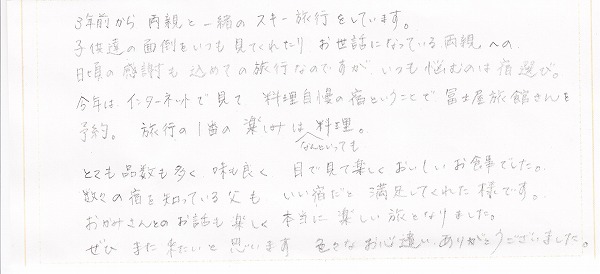 3年前から 両親と一緒の スキー旅行をしています。
子供達の面倒をいつも見てくれたり お世話になっている両親への
日頃の感謝も込めての旅行なのですが、いつも悩むのは宿選び。
今年は、インターネットで見て 料理自慢の宿ということで 冨士屋旅館さんを
予約。 旅行の1番の楽しみは 料理。
なんといっても
とても品数も多く、味も良く、目で見て楽しく おいしいお食事でした。
数々の宿を知っている父も いい宿だと 満足してくれた様です。
おかみさんとのお話も楽しく 本当に楽しい旅となりました。
ぜひ また来たいと思います 色々なお心遣い、ありがとうございました。